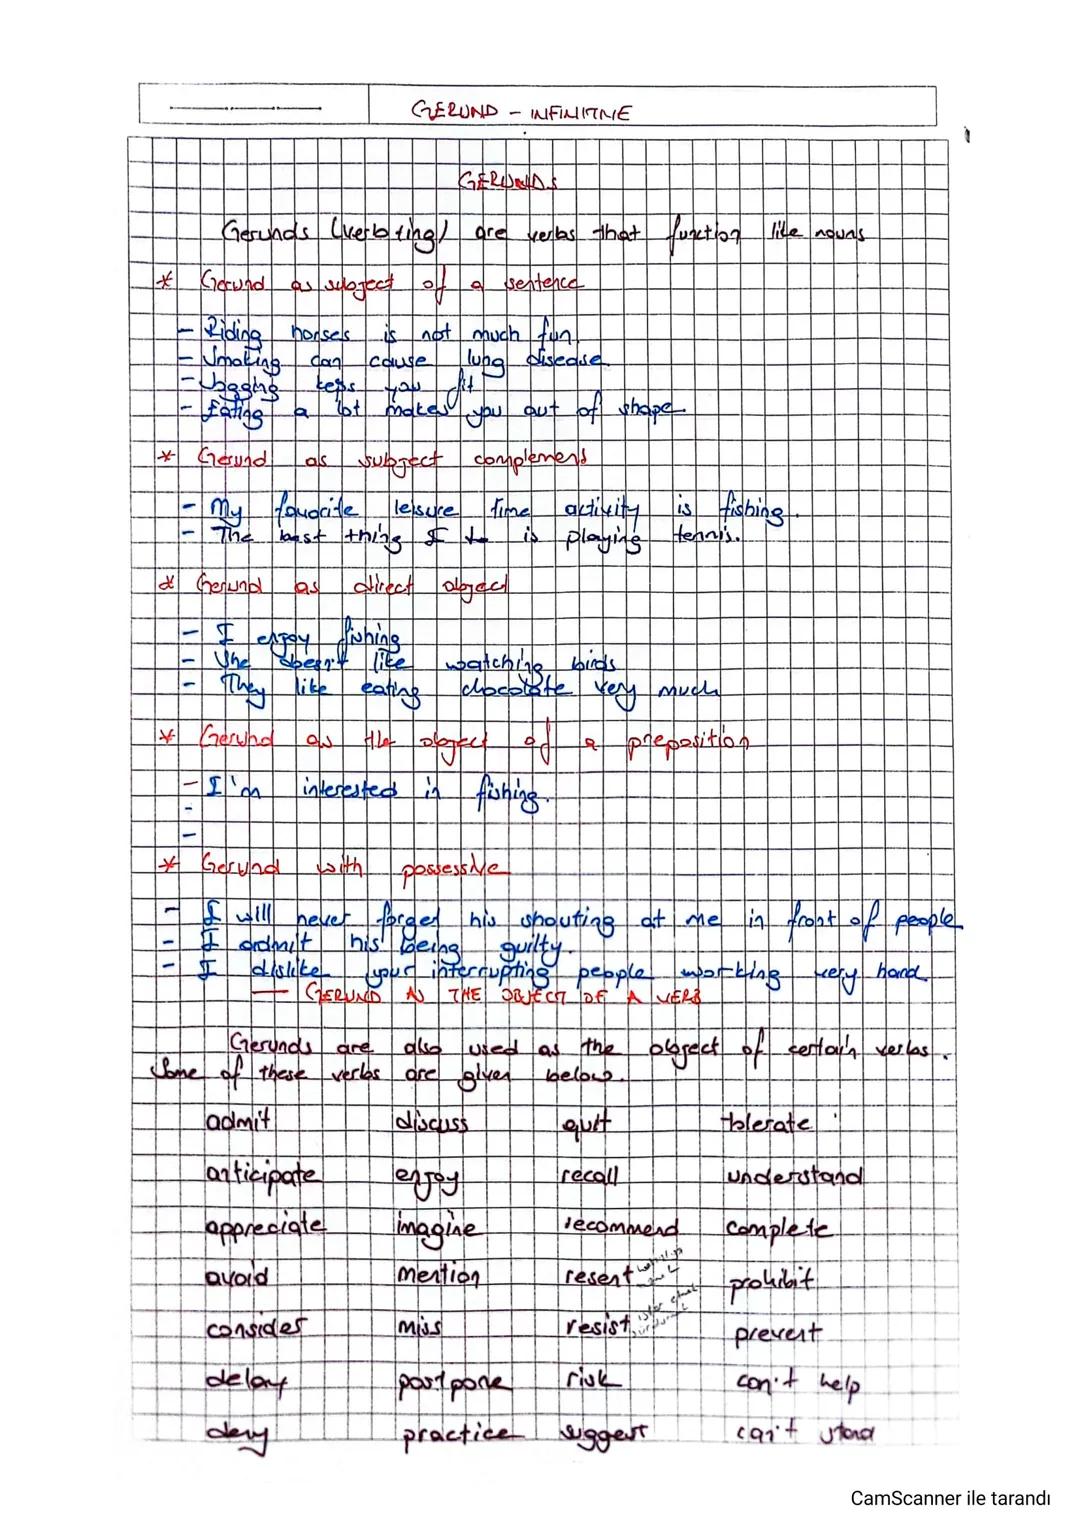 GERUND - INFINITIVE
GERUNDS
Gerunds (verb+ing) are verbs that function like nouns
* Gerund as subject of a sentence
- Riding horses is not much fun.
- Smoking can cause lung disease.
- Jogging keps you fit
- Eating a lot makes you out of shape.
* Gerund as subject complement
- My favorite leisure time activity is fishing.
- The best thing I is playing tennis.
* Gerund as direct object
- I enjoy fishing
- She doesn't like watching birds
- They like eating chocolate very much
* Gerund as the object of a preposition
- I'm interested in fishing.
-
-
* Gerund with possessive
- I will never forget his shouting at me in front of people
- I admit his being guilty.
- I dislike your interrupting people working very hard
— GERUND AS THE OBJECT OF A VERB
Gerunds are also used as the object of certain verbs.
Some of these verbs are given below.
admit discuss quit tolerate
anticipate enjoy recall understand
appreciate imagine recommend complete
avoid mention resent prohibit
consider miss resist prevent
delay postpone risk can't help
deny practice suggest can't stand
CamScanner ile tarandı